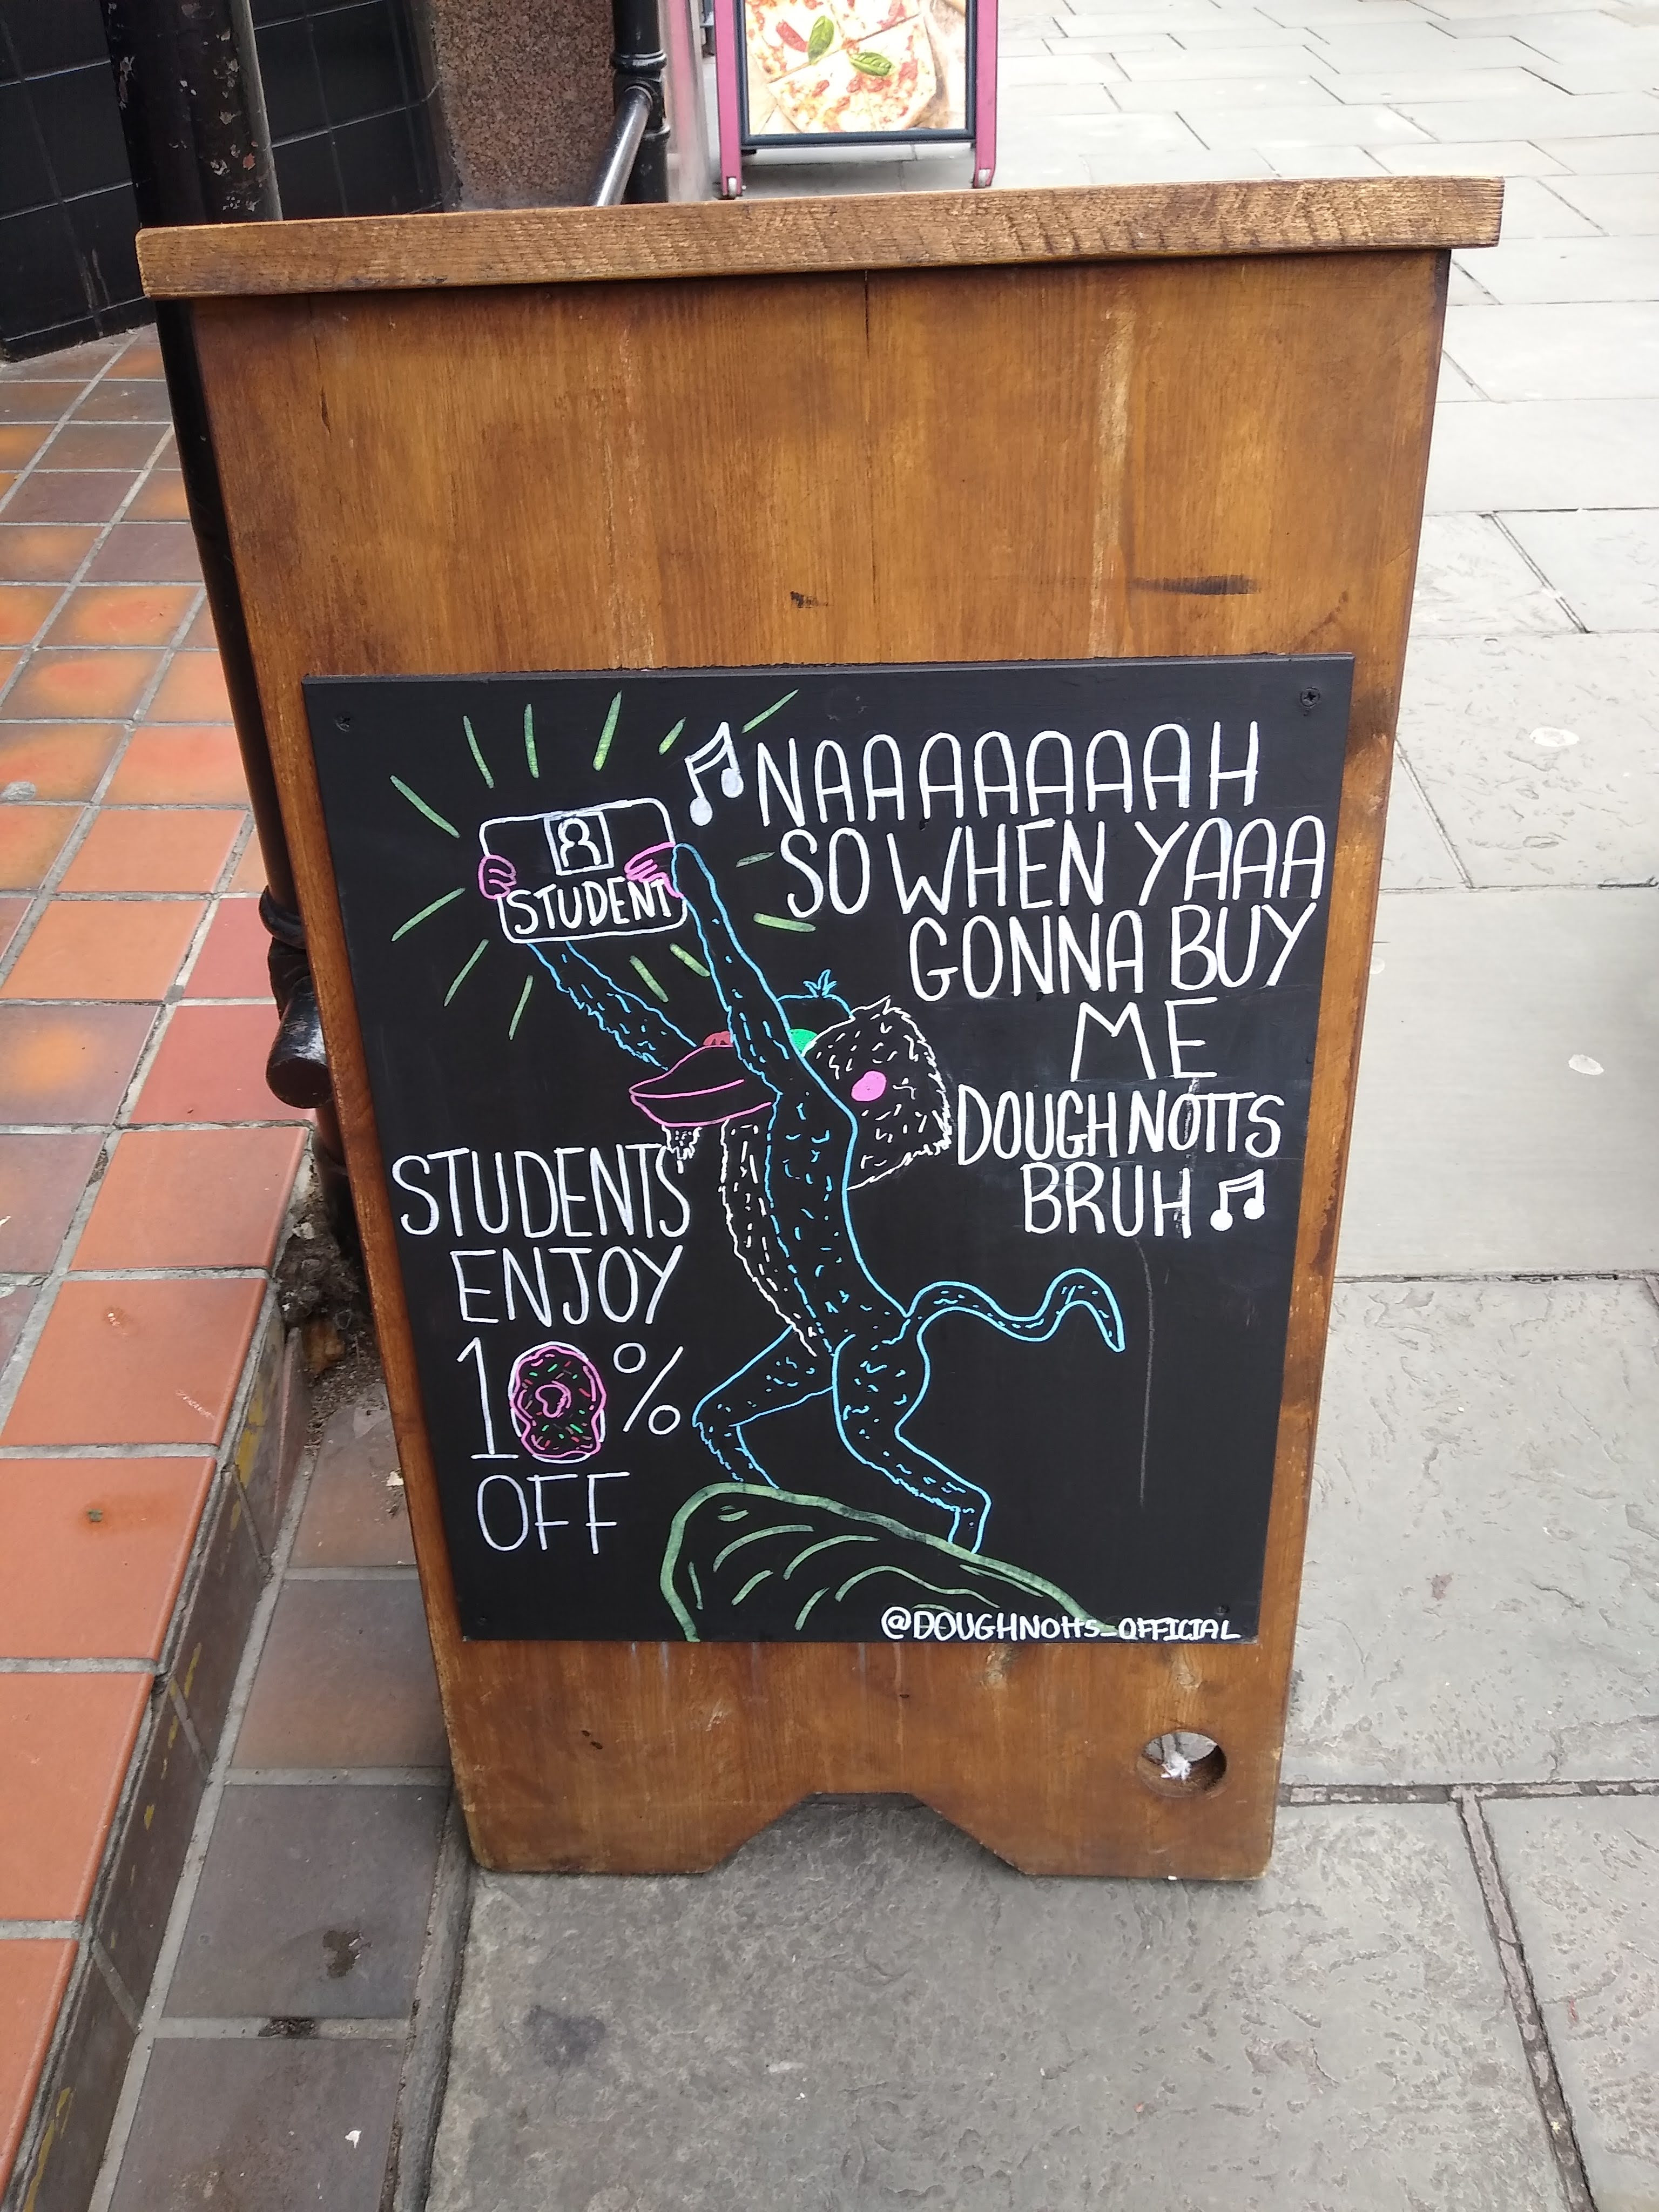 NAAAAAAAH
SO WHEN YAAA
GONNA BUY
ME
DOUGHNOTTS
BRUH
STUDENT
STUDENTS
ENJOY
10%
OFF
@DOUGHNOttS_OFFICIAL